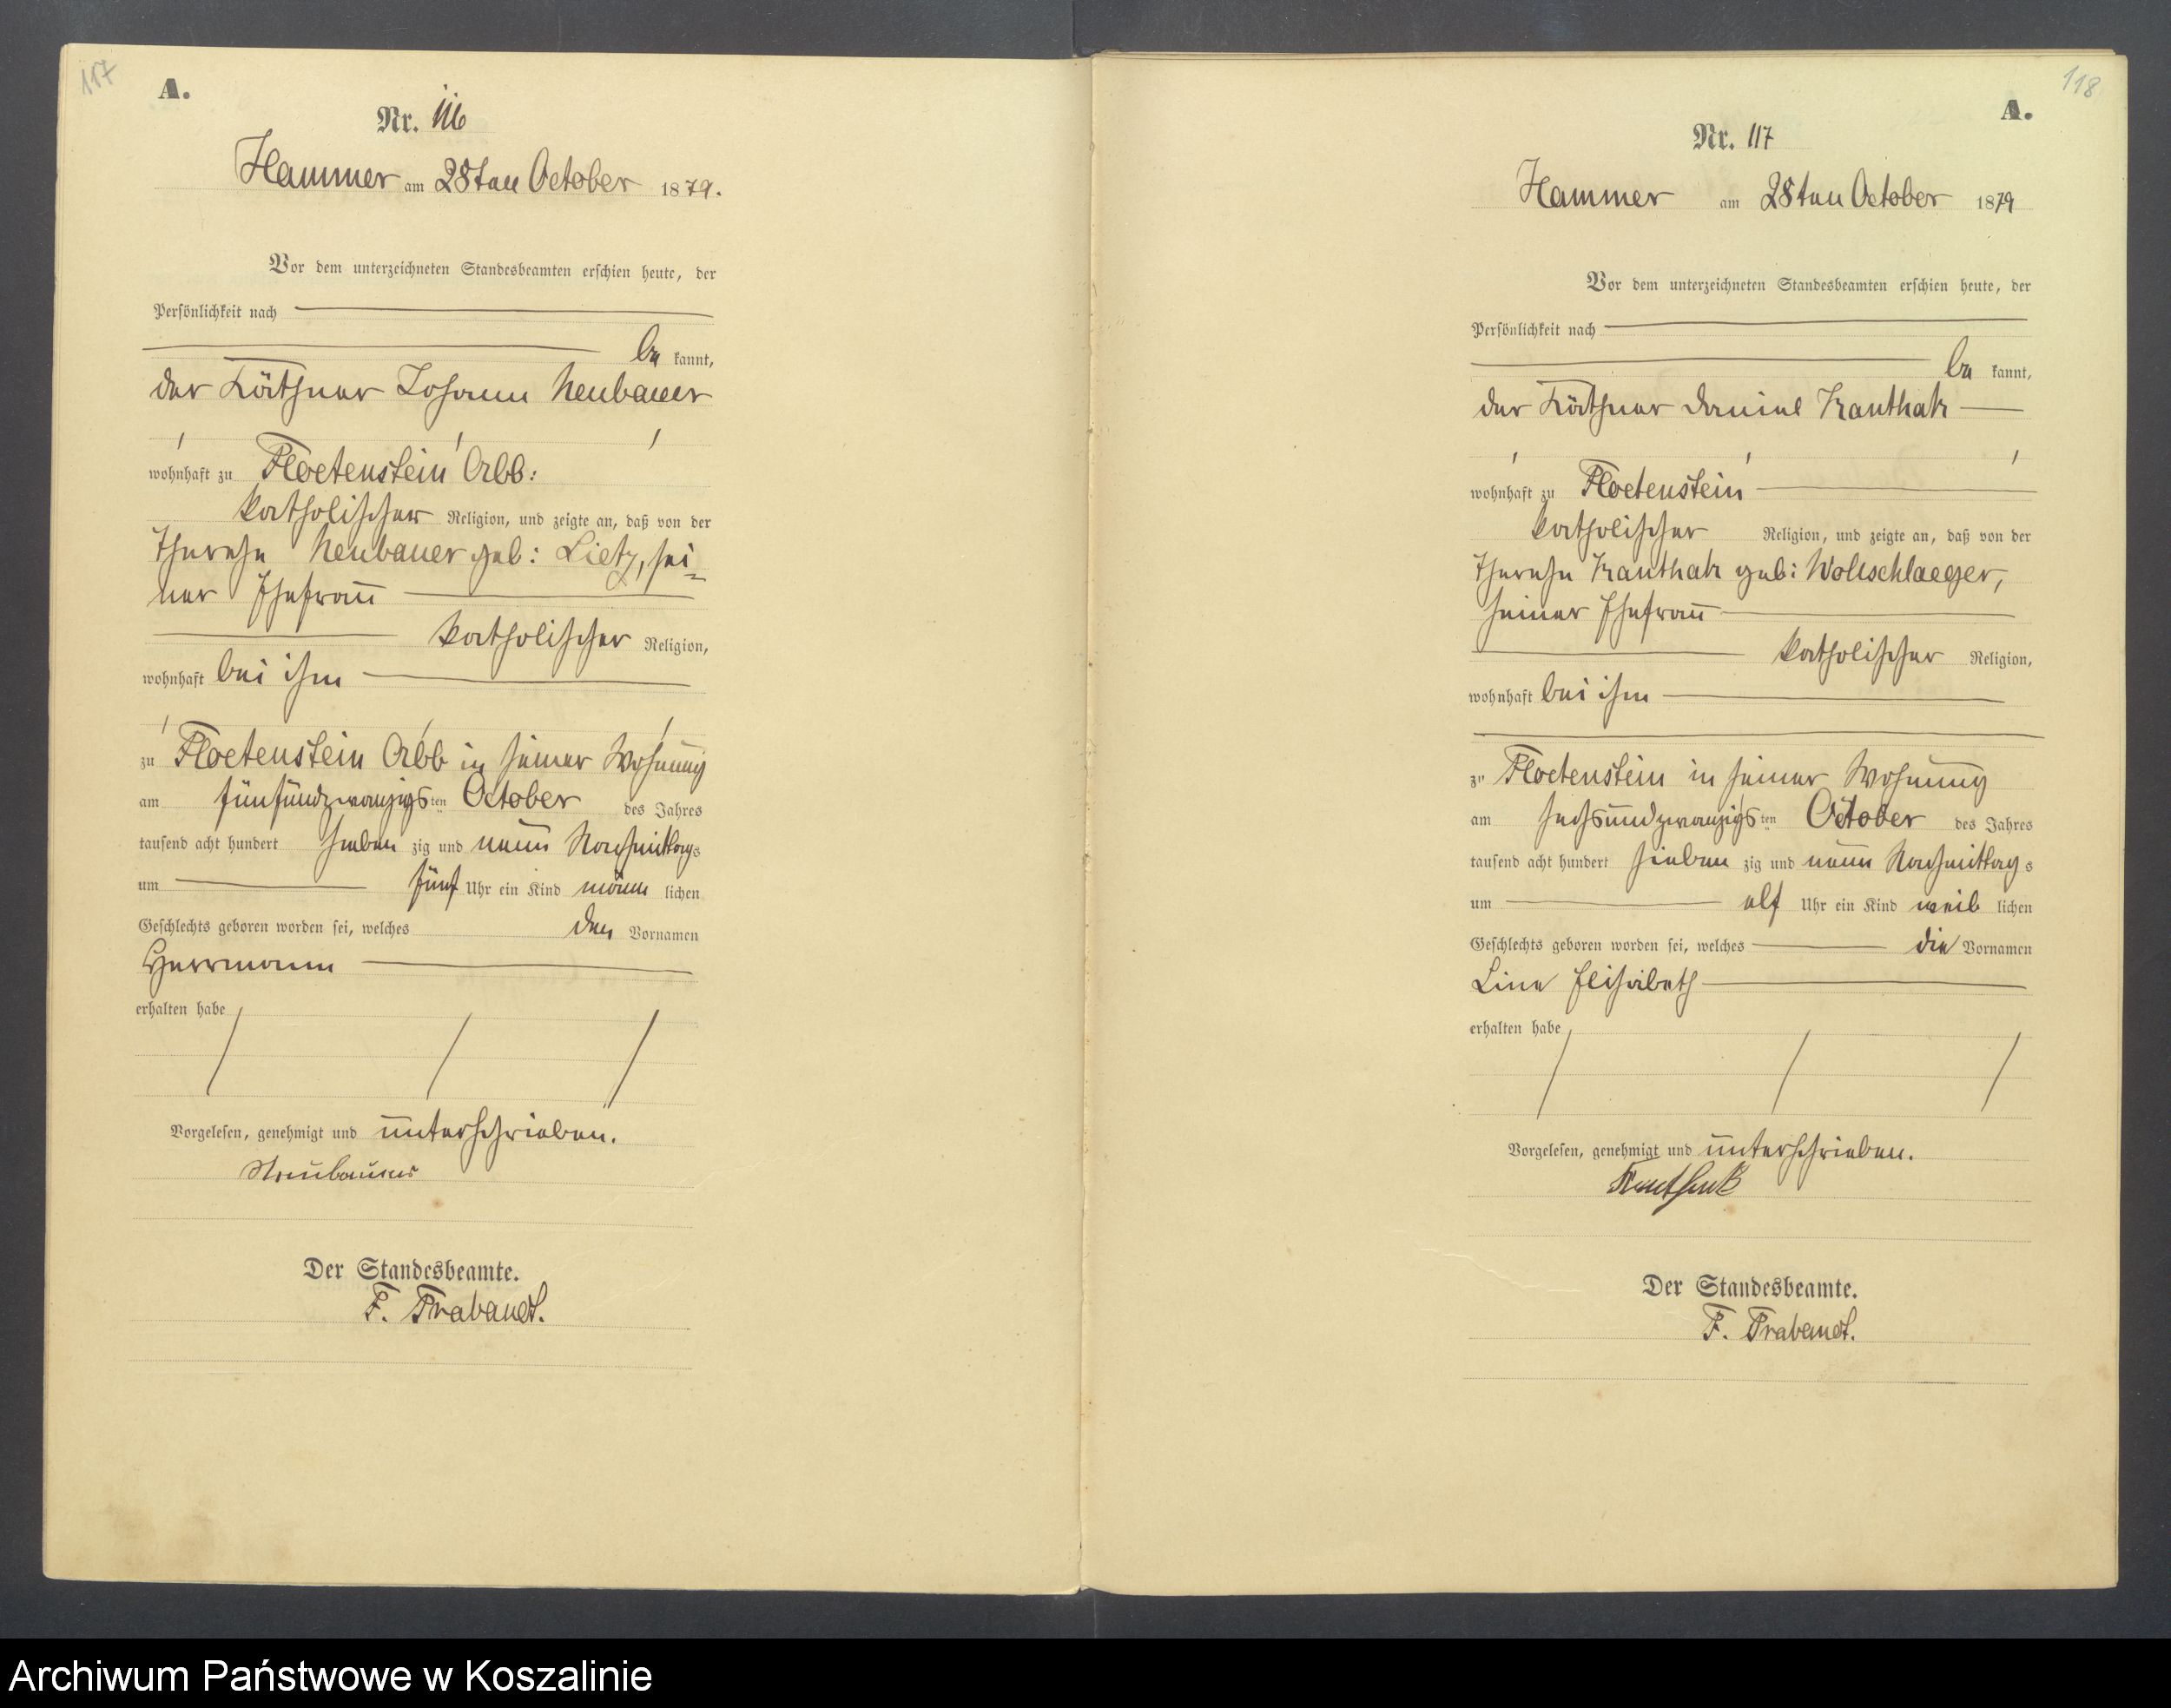 117
A.
Nr. 116
Hammer am 28ten October 1879.
Vor dem unterzeichneten Standesbeamten erschien heute, der
Persönlichkeit nach
be kannt,
der Käthner Johann Neubauer
wohnhaft zu Floetenstein Abb:
katholischer Religion, und zeigte an, daß von der
Therese Neubauer geb: Lietz, sei=
ner Ehefrau
katholischer Religion,
wohnhaft bei ihm
zu Floetenstein Abb in seiner Wohnung
am fünfundzwanzigsten October des Jahres
tausend acht hundert sieben zig und neun Nachmittags
um fünf Uhr ein Kind männ lichen
Geschlechts geboren worden sei, welches den Vornamen
Herrmann
erhalten habe
Vorgelesen, genehmigt und unterschrieben.
Neubauer
Der Standesbeamte.
F. Trabandt.
118
A.
Nr. 117
Hammer am 28ten October 1879
Vor dem unterzeichneten Standesbeamten erschien heute, der
Persönlichkeit nach
be kannt,
der Käthner Daniel Kanthak
wohnhaft zu Floetenstein
katholischer Religion, und zeigte an, daß von der
Therese Kanthak geb: Wollschlaeger,
seiner Ehefrau
katholischer Religion,
wohnhaft bei ihm
zu Floetenstein in seiner Wohnung
am sechsundzwanzigsten October des Jahres
tausend acht hundert sieben zig und neun Nachmittags
um elf Uhr ein Kind weib lichen
Geschlechts geboren worden sei, welches die Vornamen
Line Elisabeth
erhalten habe
Vorgelesen, genehmigt und unterschrieben.
Kanthak
Der Standesbeamte.
F. Trabandt.
Archiwum Państwowe w Koszalinie